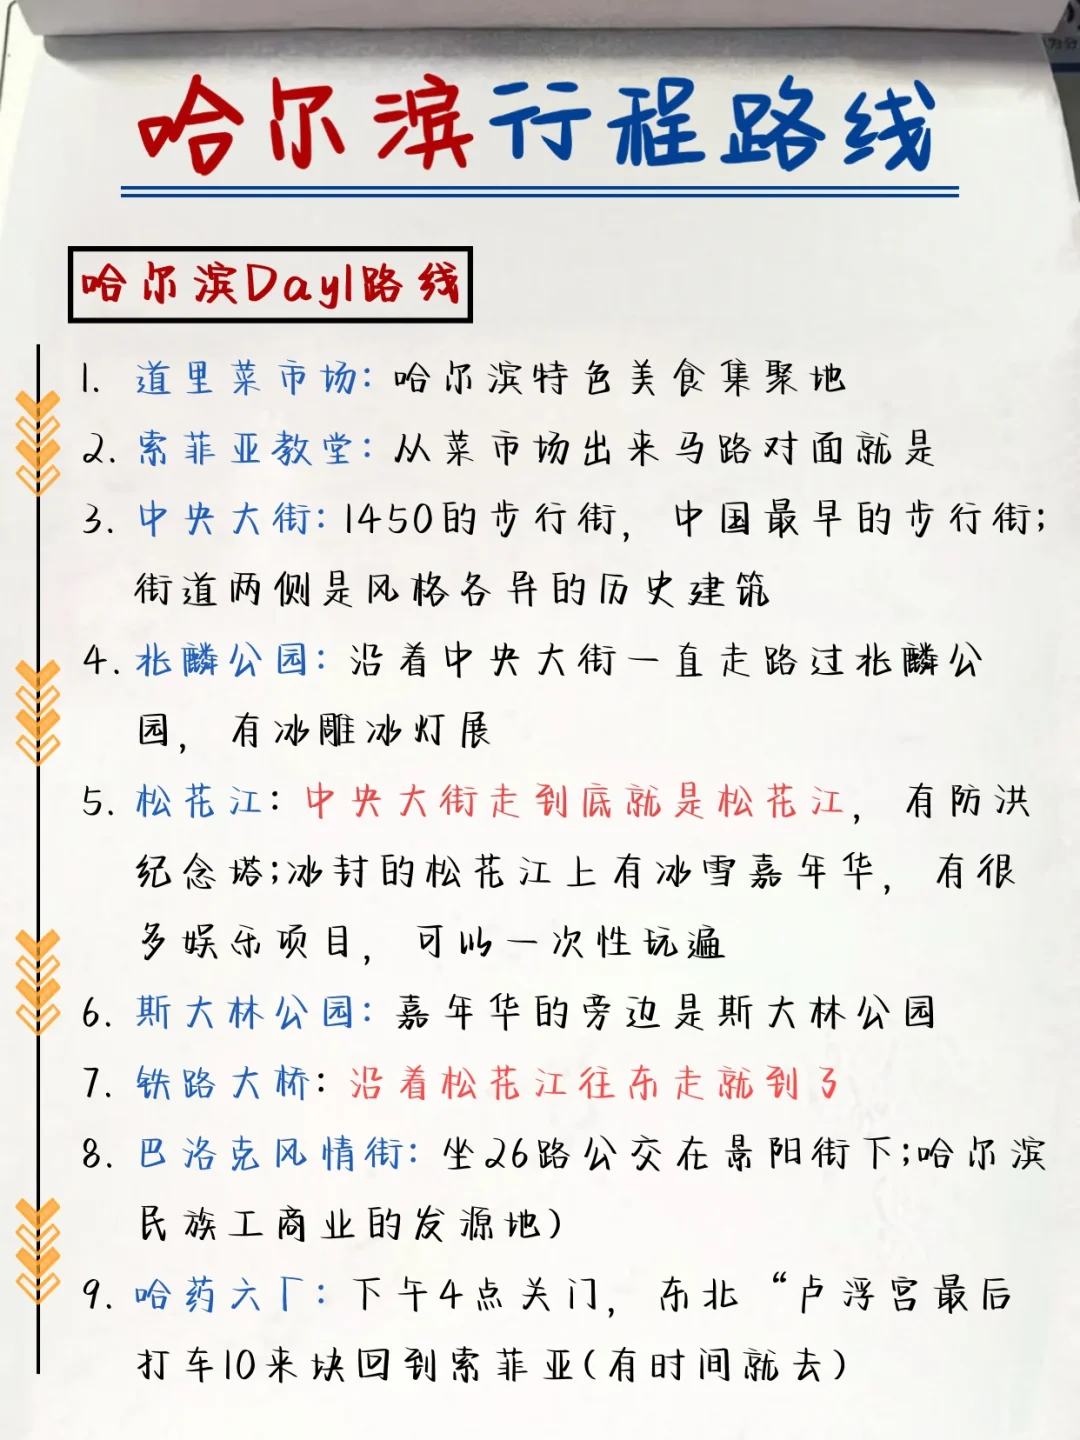 哈尔滨行程路线
哈尔滨Day1路线
1. 道里菜市场：哈尔滨特色美食集聚地
2. 索菲亚教堂：从菜市场出来马路对面就是
3. 中央大街：1450的步行街，中国最早的步行街;
街道两侧是风格各异的历史建筑
4. 兆麟公园：沿着中央大街一直走路过兆麟公
园，有冰雕冰灯展
5. 松花江：中央大街走到底就是松花江，有防洪
纪念塔;冰封的松花江上有冰雪嘉年华，有很
多娱乐项目，可以一次性玩遍
6. 斯大林公园：嘉年华的旁边是斯大林公园
7. 铁路大桥：沿着松花江往东走就到了
8. 巴洛克风情街：坐26路公交在景阳街下;哈尔滨
民族工商业的发源地)
9. 哈药六厂：下午4点关门，东北“卢浮宫最后
打车10来块回到索菲亚(有时间就去)